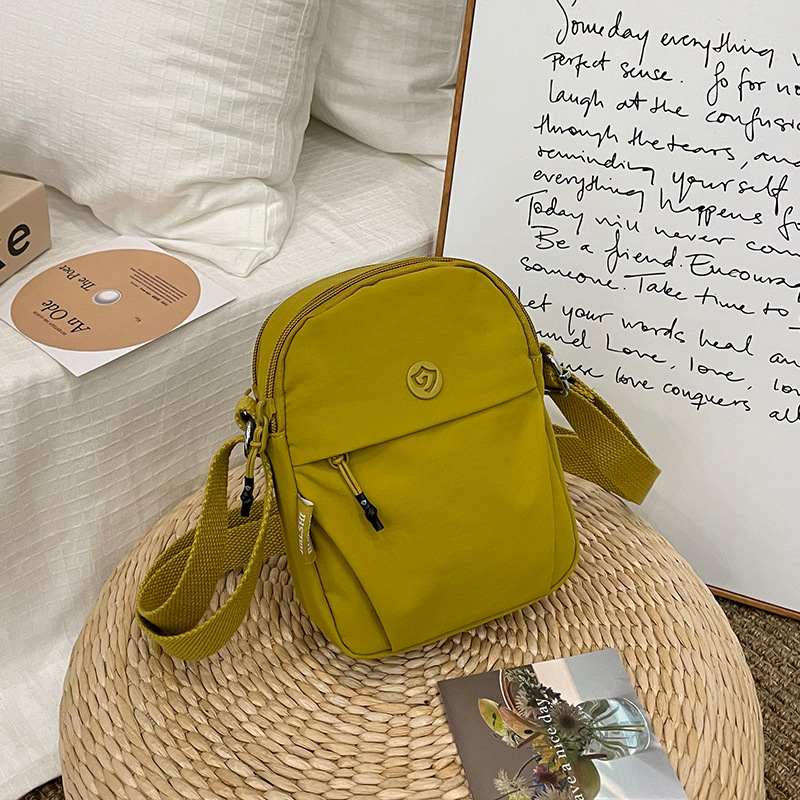 Someday everything
perfect sense. So for no
laugh at the confusi
through the tears, and
reminding yourself
everything happens fo
Today will never com
Be a friend. Encourag
someone. Take time to
Let your words heal an
Love, love, lo
love conquers all
e
An Ode
The Poet
have a nice day